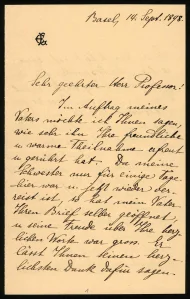 Basel, 14. Sept. 1898.
Sehr geehrter Herr Professor!
Im Auftrag meines
Vaters möchte ich Ihnen sagen,
wie sehr ihn Ihre freundliche
u. warme Theilnahme erfreut
u. gerührt hat. Da meine
Schwester nur für einige Tage
hier war u. jetzt wieder ver-
reist ist, so hat mein Vater
Ihren Brief selber geöffnet,
u. seine Freude über Ihre herz-
lichen Worte war gross. Er
lässt Ihnen seinen herz-
lichsten Dank dafür sagen.